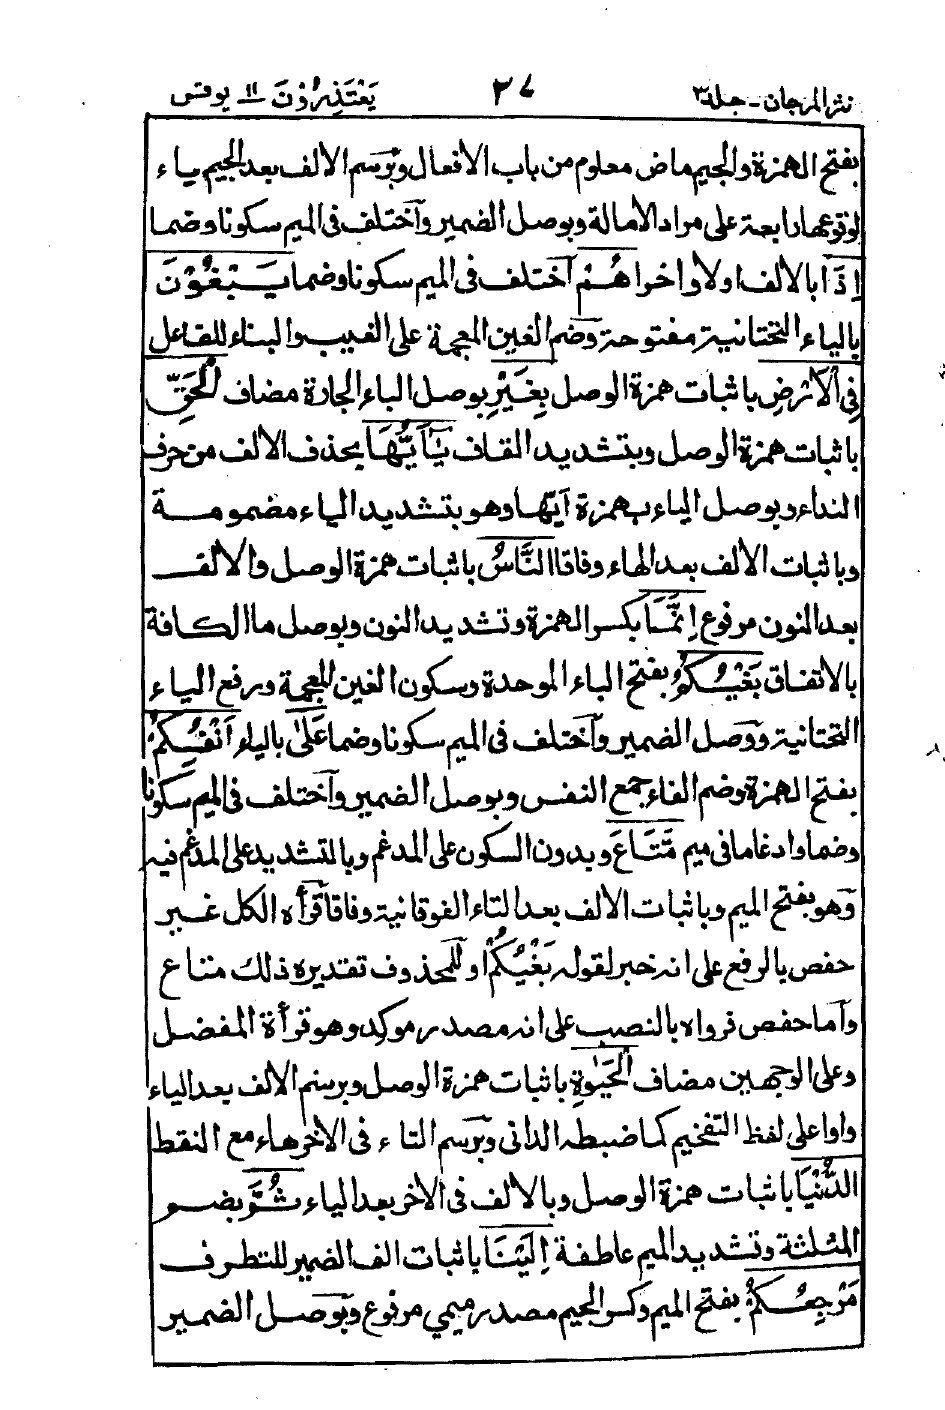 نثر المرجان - جلد ٣ ٢٧ يَعْتَذِرُوْنَ ١١ يونس
بفتح الهمزة والجيم ماض معلوم من باب الافعال وبرسم الالف بعد الجيم ياء
لوقوعها رابعة على مراد الامالة وبوصل الضمير وآختلف فى الميم سكونا وضما
اِذَا بالالف اولا واخرا هُمْ آختلف فى الميم سكونا وضما يَبْغُوْنَ
بالياء التحتانية مفتوحة وضم الغين المعجمة على الغيب والبناء للفاعل
فِى الْاَرْضِ باثبات همزة الوصل بِغَيْرِ بوصل الباء الجارة مضاف الْحَقِّ
باثبات همزة الوصل وبتشديد القاف يٰٓاَيُّهَا بحذف الالف من حرف
النداء وبوصل الياء بهمزة اَيّها وهو بتشديد الياء مضمومة
وباثبات الالف بعد الهاء وفاقا النَّاسُ باثبات همزة الوصل والالف
بعد النون مرفوع اِنَّمَا بكسر الهمزة وتشديد النون وبوصل ما الكافة
بالاتفاق بَغْيُكُمْ بفتح الباء الموحدة وسكون الغين المعجمة ورفع الياء
التحتانية ووصل الضمير وآختلف فى الميم سكونا وضما عَلٰى بالياء اَنْفُسِكُمْ
بفتح الهمزة وضم الفاء جمع النفس وبوصل الضمير وآختلف فى الميم سكونا
وضما وادغاما فى ميم مَتَاعَ وبدون السكون على المدغم وبالتشديد على المدغم فيه
وهو بفتح الميم وباثبات الالف بعد التاء الفوقانية وفاقا قرأه الكل غير
حفص بالرفع على انه خبر لقوله بَغْيُكُمْ او للمحذوف تقديره ذلك متاع
وآما حفص فرواه بالنصب على انه مصدر موكد وهو قرأة المفضل
وعلى الوجهين مضاف الْحَيٰوةِ باثبات همزة الوصل وبرسم الالف بعد الياء
واوا على لفظ التفخيم كما ضبطه الدانى وبرسم التاء فى الاخر هاء مع النقط
الدُّنْيَا باثبات همزة الوصل وبالالف فى الاخر بعد الياء ثُمَّ بضم
المثلثة وتشديد الميم عاطفة اِلَيْنَا باثبات الف الضمير للتطرف
مَرْجِعُكُمْ بفتح الميم وكسر الجيم مصدر ميمي مرفوع وبوصل الضمير